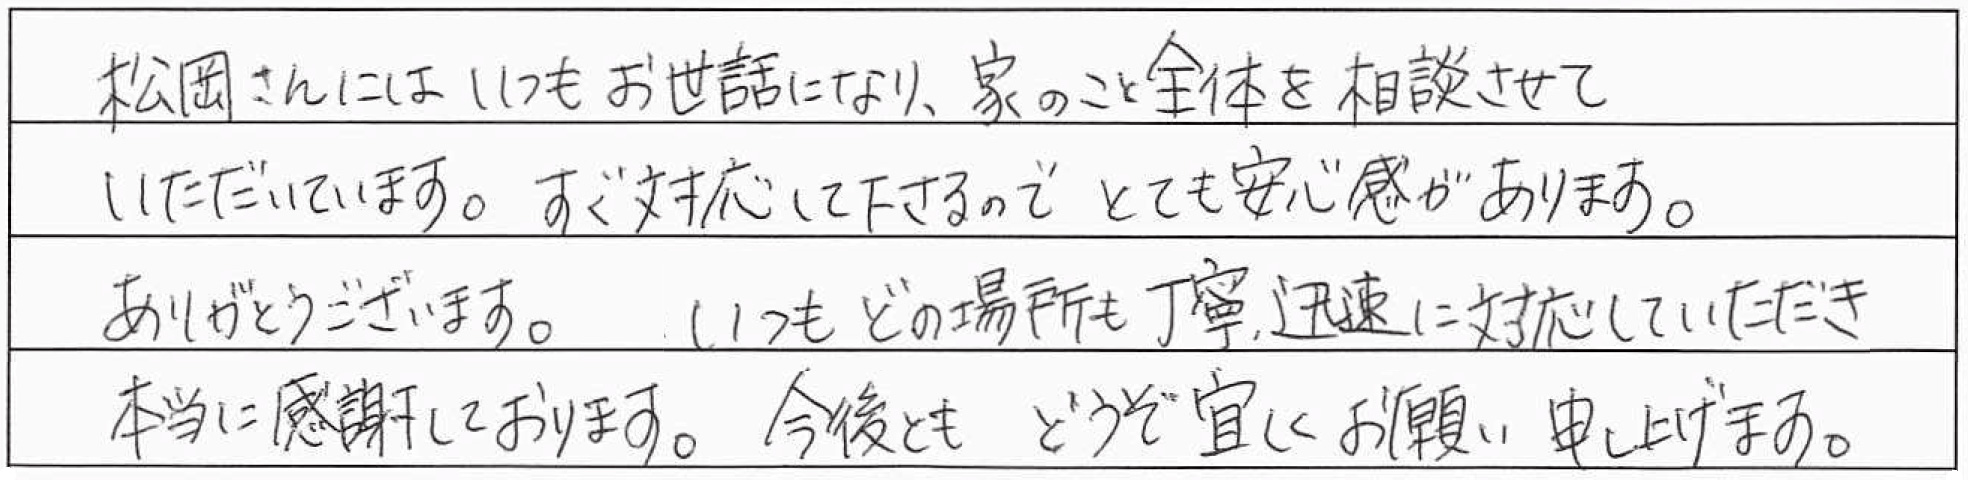 松岡さんにはいつもお世話になり、家のこと全体を相談させて
いただいています。すぐ対応して下さるのでとても安心感があります。
ありがとうございます。 いつもどの場所も丁寧、迅速に対応していただき
本当に感謝しております。今後ともどうぞ宜しくお願い申し上げます。